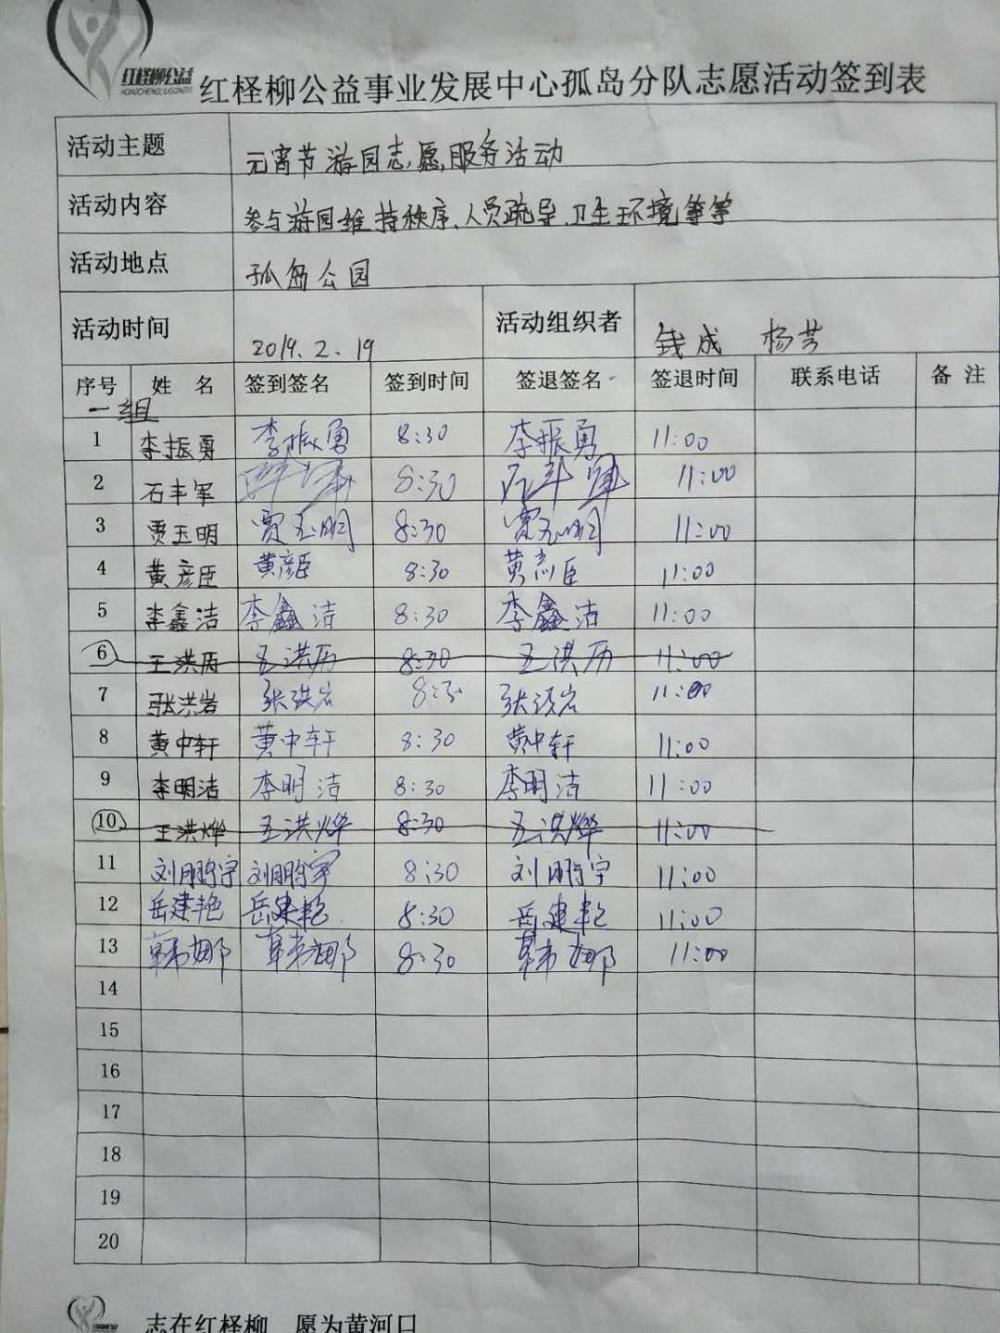 红柽柳公益
HONGCHENGLIUGONGYI
红柽柳公益事业发展中心孤岛分队志愿活动签到表
活动主题 元宵节游园志愿服务活动
活动内容 参与游园维持秩序、人员疏导、卫生环境等等
活动地点 孤岛公园
活动时间 2019.2.19 活动组织者 钱成 杨芳
序号 姓 名 签到签名 签到时间 签退签名 签退时间 联系电话 备 注
一组
1 李振勇 李振勇 8:30 李振勇 11:00
2 石丰军 8:30 石丰军 11:00
3 贾玉明 贾玉明 8:30 贾玉明 11:00
4 黄彦臣 黄彦臣 8:30 黄彦臣 11:00
5 李鑫洁 李鑫洁 8:30 李鑫洁 11:00
6 王洪历 王洪历 8:30 王洪历 11:00
7 张洪岩 张洪岩 8:30 张洪岩 11:00
8 黄中轩 黄中轩 8:30 黄中轩 11:00
9 李明洁 李明洁 8:30 李明洁 11:00
10 王洪烨 王洪烨 8:30 王洪烨 11:00
11 刘鹏宇 刘鹏宇 8:30 刘鹏宇 11:00
12 岳建艳 岳建艳 8:30 岳建艳 11:00
13 韩娜 韩娜 8:30 韩娜 11:00
14
15
16
17
18
19
20
志在红柽柳 愿为黄河口